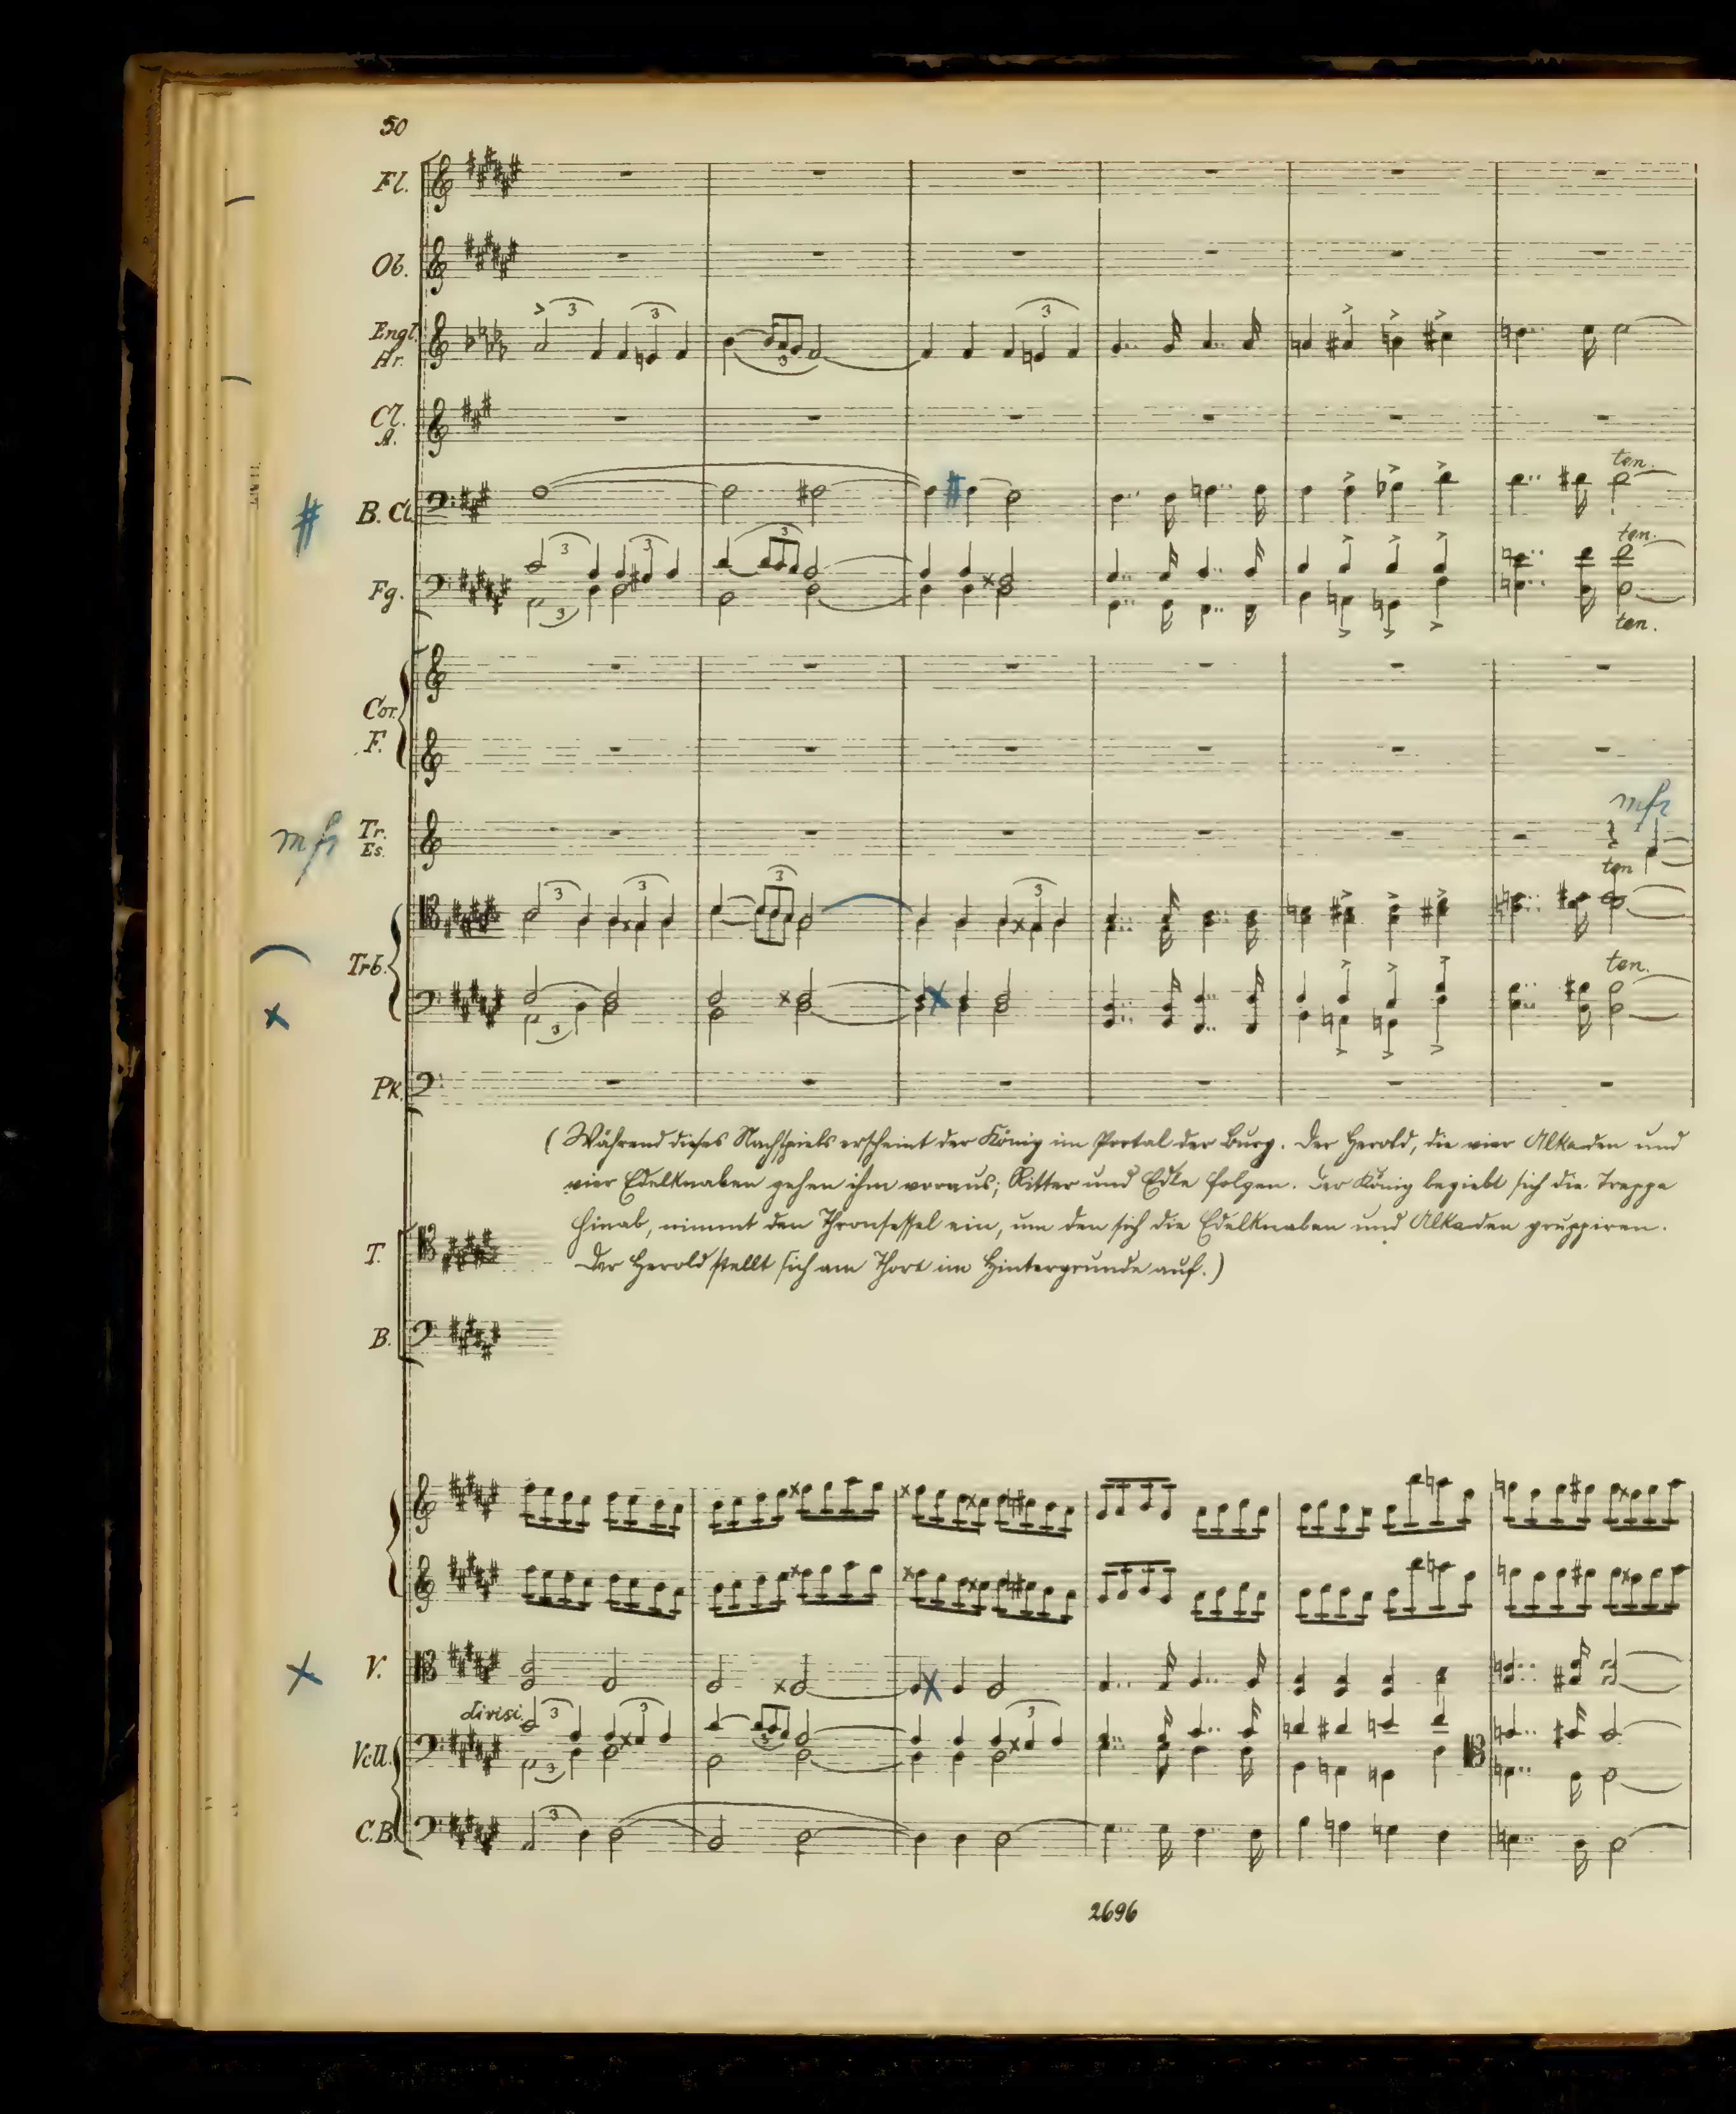 50
Fl.
Ob.
Engl.
Hr.
3 3 3 3
Cl.
A.
ten.
B. Cl.
3 3 3 ten.
Fg.
3 ten.
Cor.
F.
mf
mf Tr.
Es.
ten
3 3 3 3
Trb.
ten.
3
Pk.
(Während dieses Nachspiels erscheint der König im Portal der Burg. Der Herold, die vier Alkaden und
vier Edelknaben gehen ihm voraus; Ritter und Edle folgen. Der König begiebt sich die Treppe
hinab, nimmt den Thronsessel ein, um den sich die Edelknaben und Alkaden gruppiren.
Der Herold stellt sich am Thore im Hintergrunde auf.)
T.
B.
V.
divisi. 3 3 3 3
Vcll.
3
3
C.B.
2696